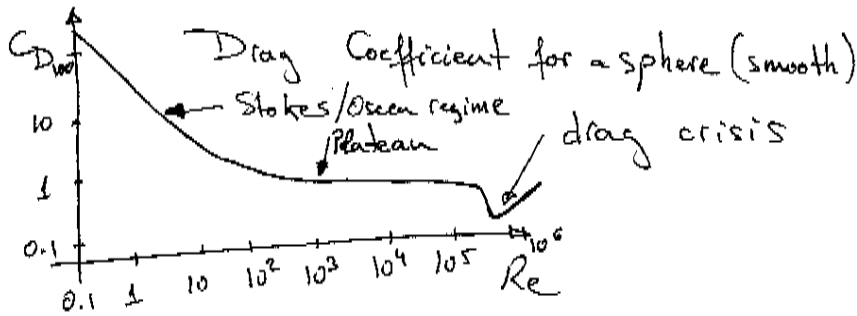 C_D Drag Coefficient for a sphere (smooth)
100
Stokes/Oseen regime
10
Plateau
drag crisis
1
0.1
0.1 1 10 10² 10³ 10⁴ 10⁵ 10⁶
Re